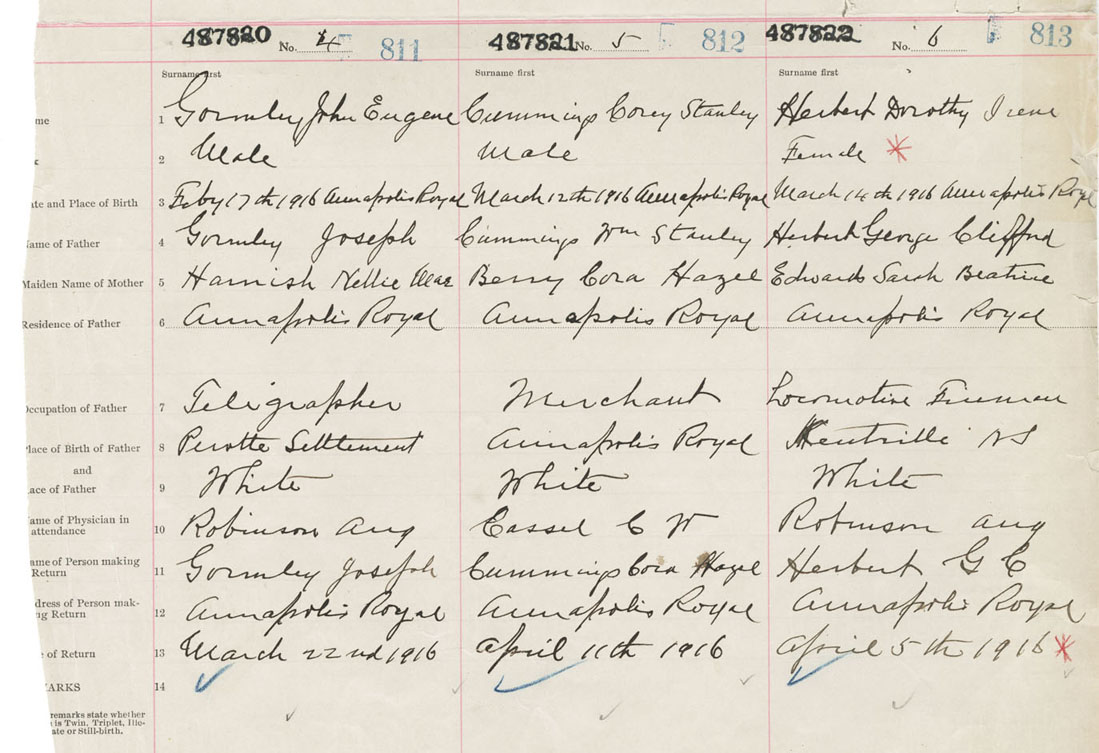 487820 No. 4 811 487821 No. 5 812 487822 No. 6 813
Surname first Surname first Surname first
me 1 Gormley John Eugene Cummings Corey Stanley Herbert Dorothy Irene
2 Male Male Female *
ate and Place of Birth 3 Feby 17th 1916 Annapolis Royal March 12th 1916 Annapolis Royal March 14th 1916 Annapolis Royal
ame of Father 4 Gormley Joseph Cummings Wm Stanley Herbert George Clifford
Maiden Name of Mother 5 Harnish Nellie Mae Berry Cora Hazel Edwards Sarah Beatrice
Residence of Father 6 Annapolis Royal Annapolis Royal Annapolis Royal
Occupation of Father 7 Telegrapher Merchant Locomotive Fireman
lace of Birth of Father 8 Perotte Settlement Annapolis Royal Kentville NS
and
ace of Father 9 White White White
ame of Physician in
attendance 10 Robinson Aug C W Robinson Aug
ame of Person making
Return 11 Gormley Joseph Cummings Cora Hazel Herbert G C
ddress of Person mak-
ng Return 12 Annapolis Royal Annapolis Royal Annapolis Royal
e of Return 13 March 22nd 1916 April 11th 1916 April 5th 1916 *
ARKS 14
remarks state whether
is Twin, Triplet, Ille-
ate or Still-birth.